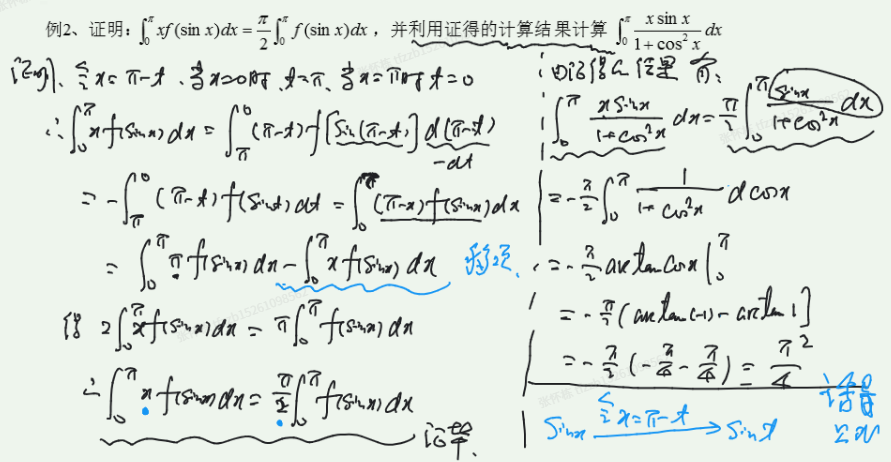 例2、证明：∫₀^π xf(sin x)dx = π/2 ∫₀^π f(sin x)dx，并利用证得的计算结果计算 ∫₀^π (x sin x)/(1+cos² x) dx
证明、令x=π-t、当x=0时、t=π、当x=π时t=0
∴∫₀^π xf(sinx)dx = ∫_π^0 (π-t)f[sin(π-t)]d(π-t)
-dt
= -∫_π^0 (π-t)f(sint)dt = ∫₀^π (π-x)f(sinx)dx
= ∫₀^π πf(sinx)dx - ∫₀^π xf(sinx)dx 移项、
得 2∫₀^π xf(sinx)dx = π∫₀^π f(sinx)dx
∴∫₀^π xf(sinx)dx = π/2 ∫₀^π f(sinx)dx
证毕、
由证得的结果有、
∫₀^π (xsinx)/(1+cos²x) dx = π/2 ∫₀^π sinx/(1+cos²x) dx
= -π/2 ∫₀^π 1/(1+cos²x) dcosx
= -π/2 arctancosx |₀^π
= -π/2 [arctan(-1) - arctan1]
= -π/2 (-π/4 - π/4) = π²/4
sinx 令x=π-t → sint